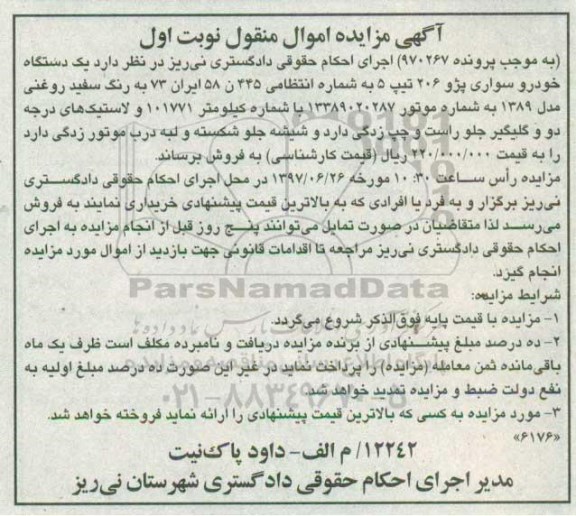 آگهی مزایده اموال منقول نوبت اول
(به موجب پرونده ۹۷۰۲۶۷) اجرای احکام حقوقی دادگستری نی‌ریز در نظر دارد یک دستگاه
خودرو سواری پژو ۲۰۶ تیپ ۵ به شماره انتظامی ۴۴۵ ن ۵۸ ایران ۷۳ به رنگ سفید روغنی
مدل ۱۳۸۹ به شماره موتور ۱۳۳۸۹۰۲۰۲۸۷ با شماره کیلومتر ۱۰۱۷۷۱ و لاستیک‌های درجه
دو و گلگیر جلو راست و چپ زدگی دارد و شیشه جلو شکسته و لبه درب موتور زدگی دارد
را به قیمت ۲۲۰/۰۰۰/۰۰۰ ریال (قیمت کارشناسی) به فروش برساند.
مزایده رأس ساعت ۱۰:۳۰ مورخه ۱۳۹۷/۰۶/۲۶ در محل اجرای احکام حقوقی دادگستری
نی‌ریز برگزار و به فرد یا افرادی که به بالاترین قیمت پیشنهادی خریداری نمایند به فروش
می‌رسد لذا متقاضیان در صورت تمایل می‌توانند پنج روز قبل از انجام مزایده به اجرای
احکام حقوقی دادگستری نی‌ریز مراجعه تا اقدامات قانونی جهت بازدید از اموال مورد مزایده
انجام گیرد.
ParsNamadData
شرایط مزایده:
۱- مزایده با قیمت پایه فوق‌الذکر شروع می‌گردد.
۲- ده درصد مبلغ پیشنهادی از برنده مزایده دریافت و نامبرده مکلف است ظرف یک ماه
باقی‌مانده ثمن معامله (مزایده) را پرداخت نماید در غیر این صورت ده درصد مبلغ اولیه به
نفع دولت ضبط و مزایده تمدید خواهد شد.
۰۲۱-۸۸۳۴۹۶۷۰-۵
۳- مورد مزایده به کسی که بالاترین قیمت پیشنهادی را ارائه نماید فروخته خواهد شد.
«۶۱۷۶»
۱۲۲۴۲/ م الف- داود پاک‌نیت
مدیر اجرای احکام حقوقی دادگستری شهرستان نی‌ریز